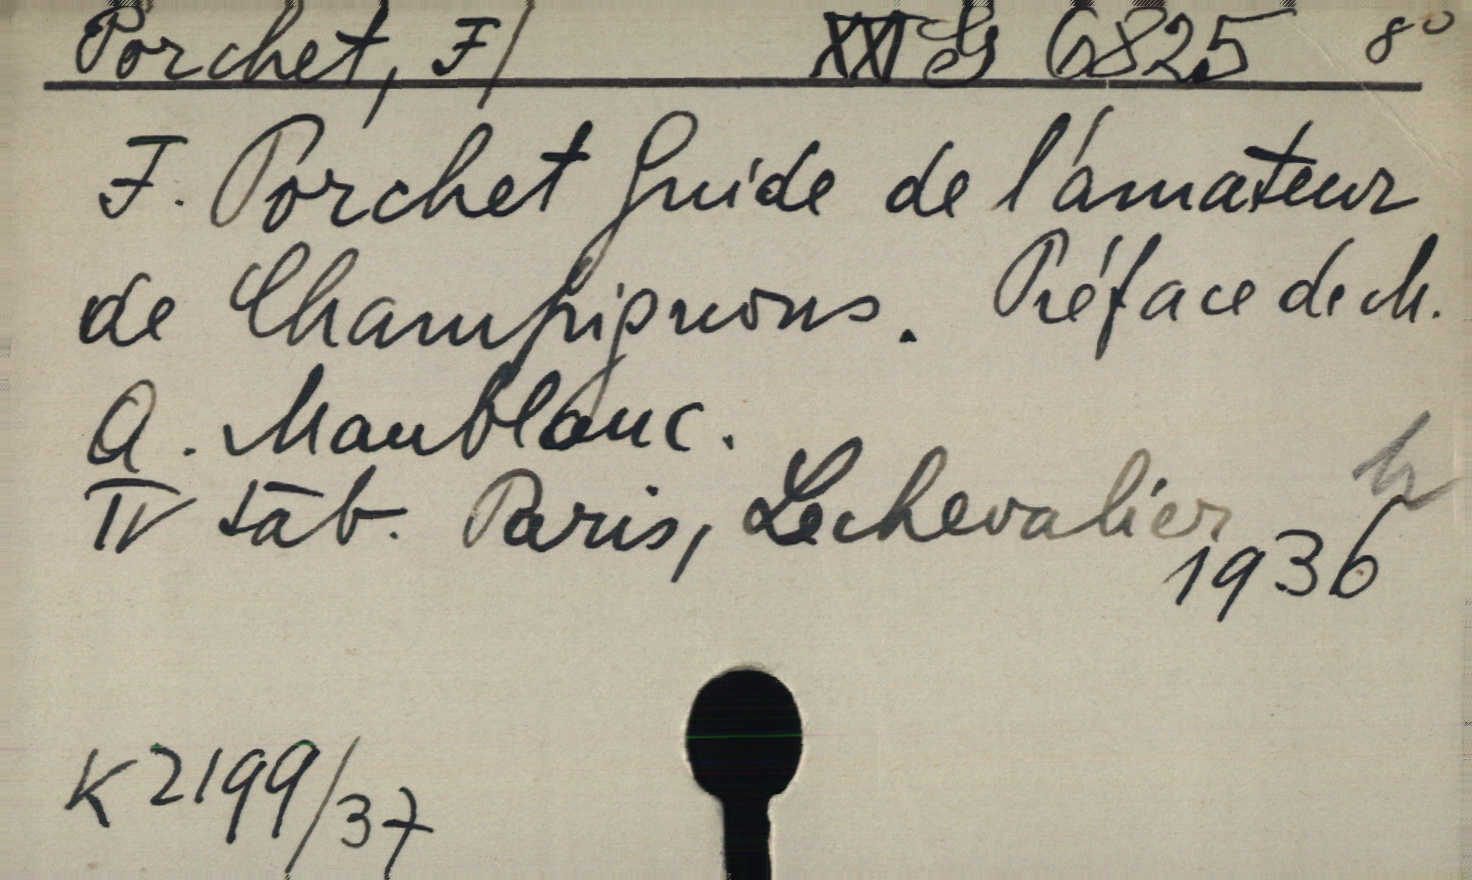 Porchet, F/ XXI 6825 8°
F. Porchet Guide de l'amateur
de Champignons. Préface de M.
A. Maublanc.
IV táb. Paris, Lechevalier
1936
K 2199/37